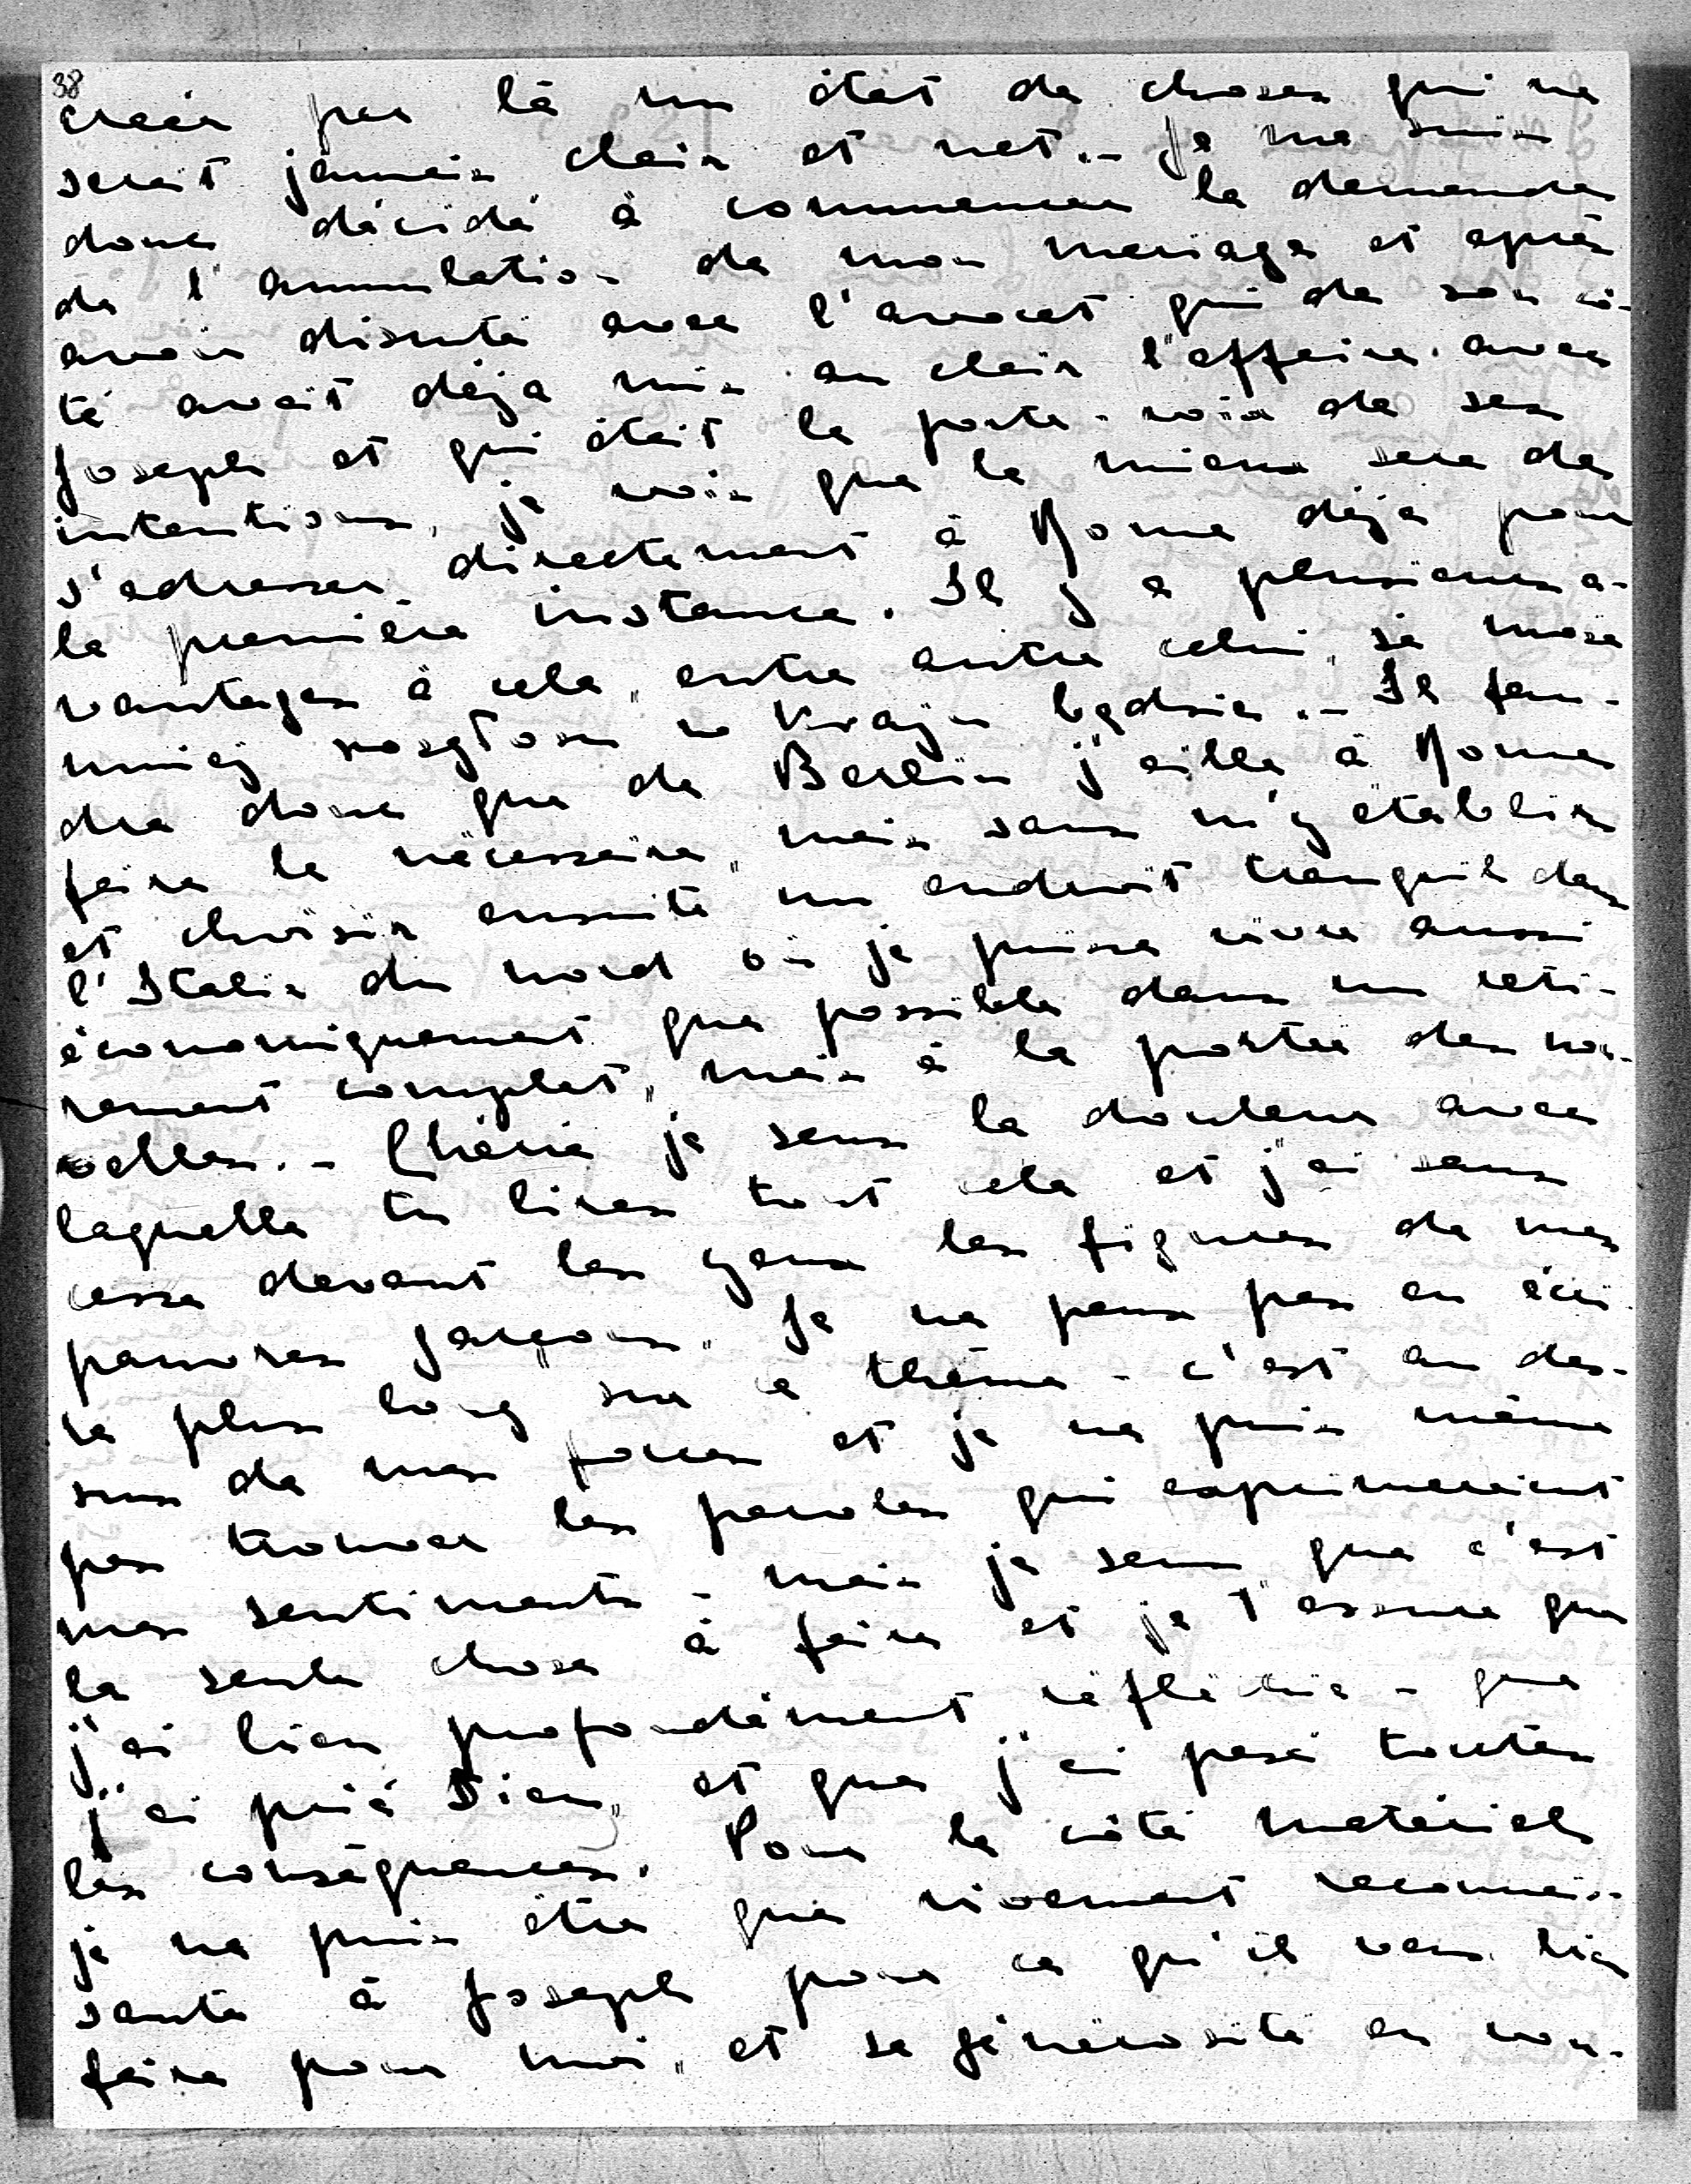 38
créer par là un état de choses qui ne
serait jamais clair et net. – Je me suis
donc décidé à commencer la demande
de l'annulation de mon mariage et après
avoir discuté avec l'avocat qui de son cô-
té avait déjà mis au clair l'affaire avec
Joseph et qui était le porte-voix de ses
intentions, je vois que le mieux sera de
s'adresser directement à Rome déjà pour
la première instance. Il y a plusieurs a-
vantages à cela, entre autre celui, że może
mniej rozgłosu w kraju będzie. – Il fau-
dra donc que de Berlin j'aille à Rome
faire le nécessaire, mais sans m'y établir
et choisir ensuite un endroit tranquil dans
l'Italie du nord où je puisse vivre aussi
économiquement que possible dans un reti-
rement complet, mais à la portée des nou-
velles. – Chérie je sens la douleur avec
laquelle tu liras tout cela et j'ai sans
cesse devant les yeux les figures de mes
pauvres garçons. Je ne peux pas en écri-
re plus long sur ce thème – c'est au des-
sus de mes forces et je ne puis même
pas trouver les paroles qui exprimeraient
mes sentiments – mais je sens que c'est
la seule chose à faire et je t'assure que
j'ai bien profondément réfléchie – que
j'ai prié Dieu, et que j'ai pesé toutes
les conséquences. Pour le côté matériel
je ne puis être que vivement reconnais-
sante à Joseph pour ce qu'il veut bien
faire pour moi, et sa générosité en